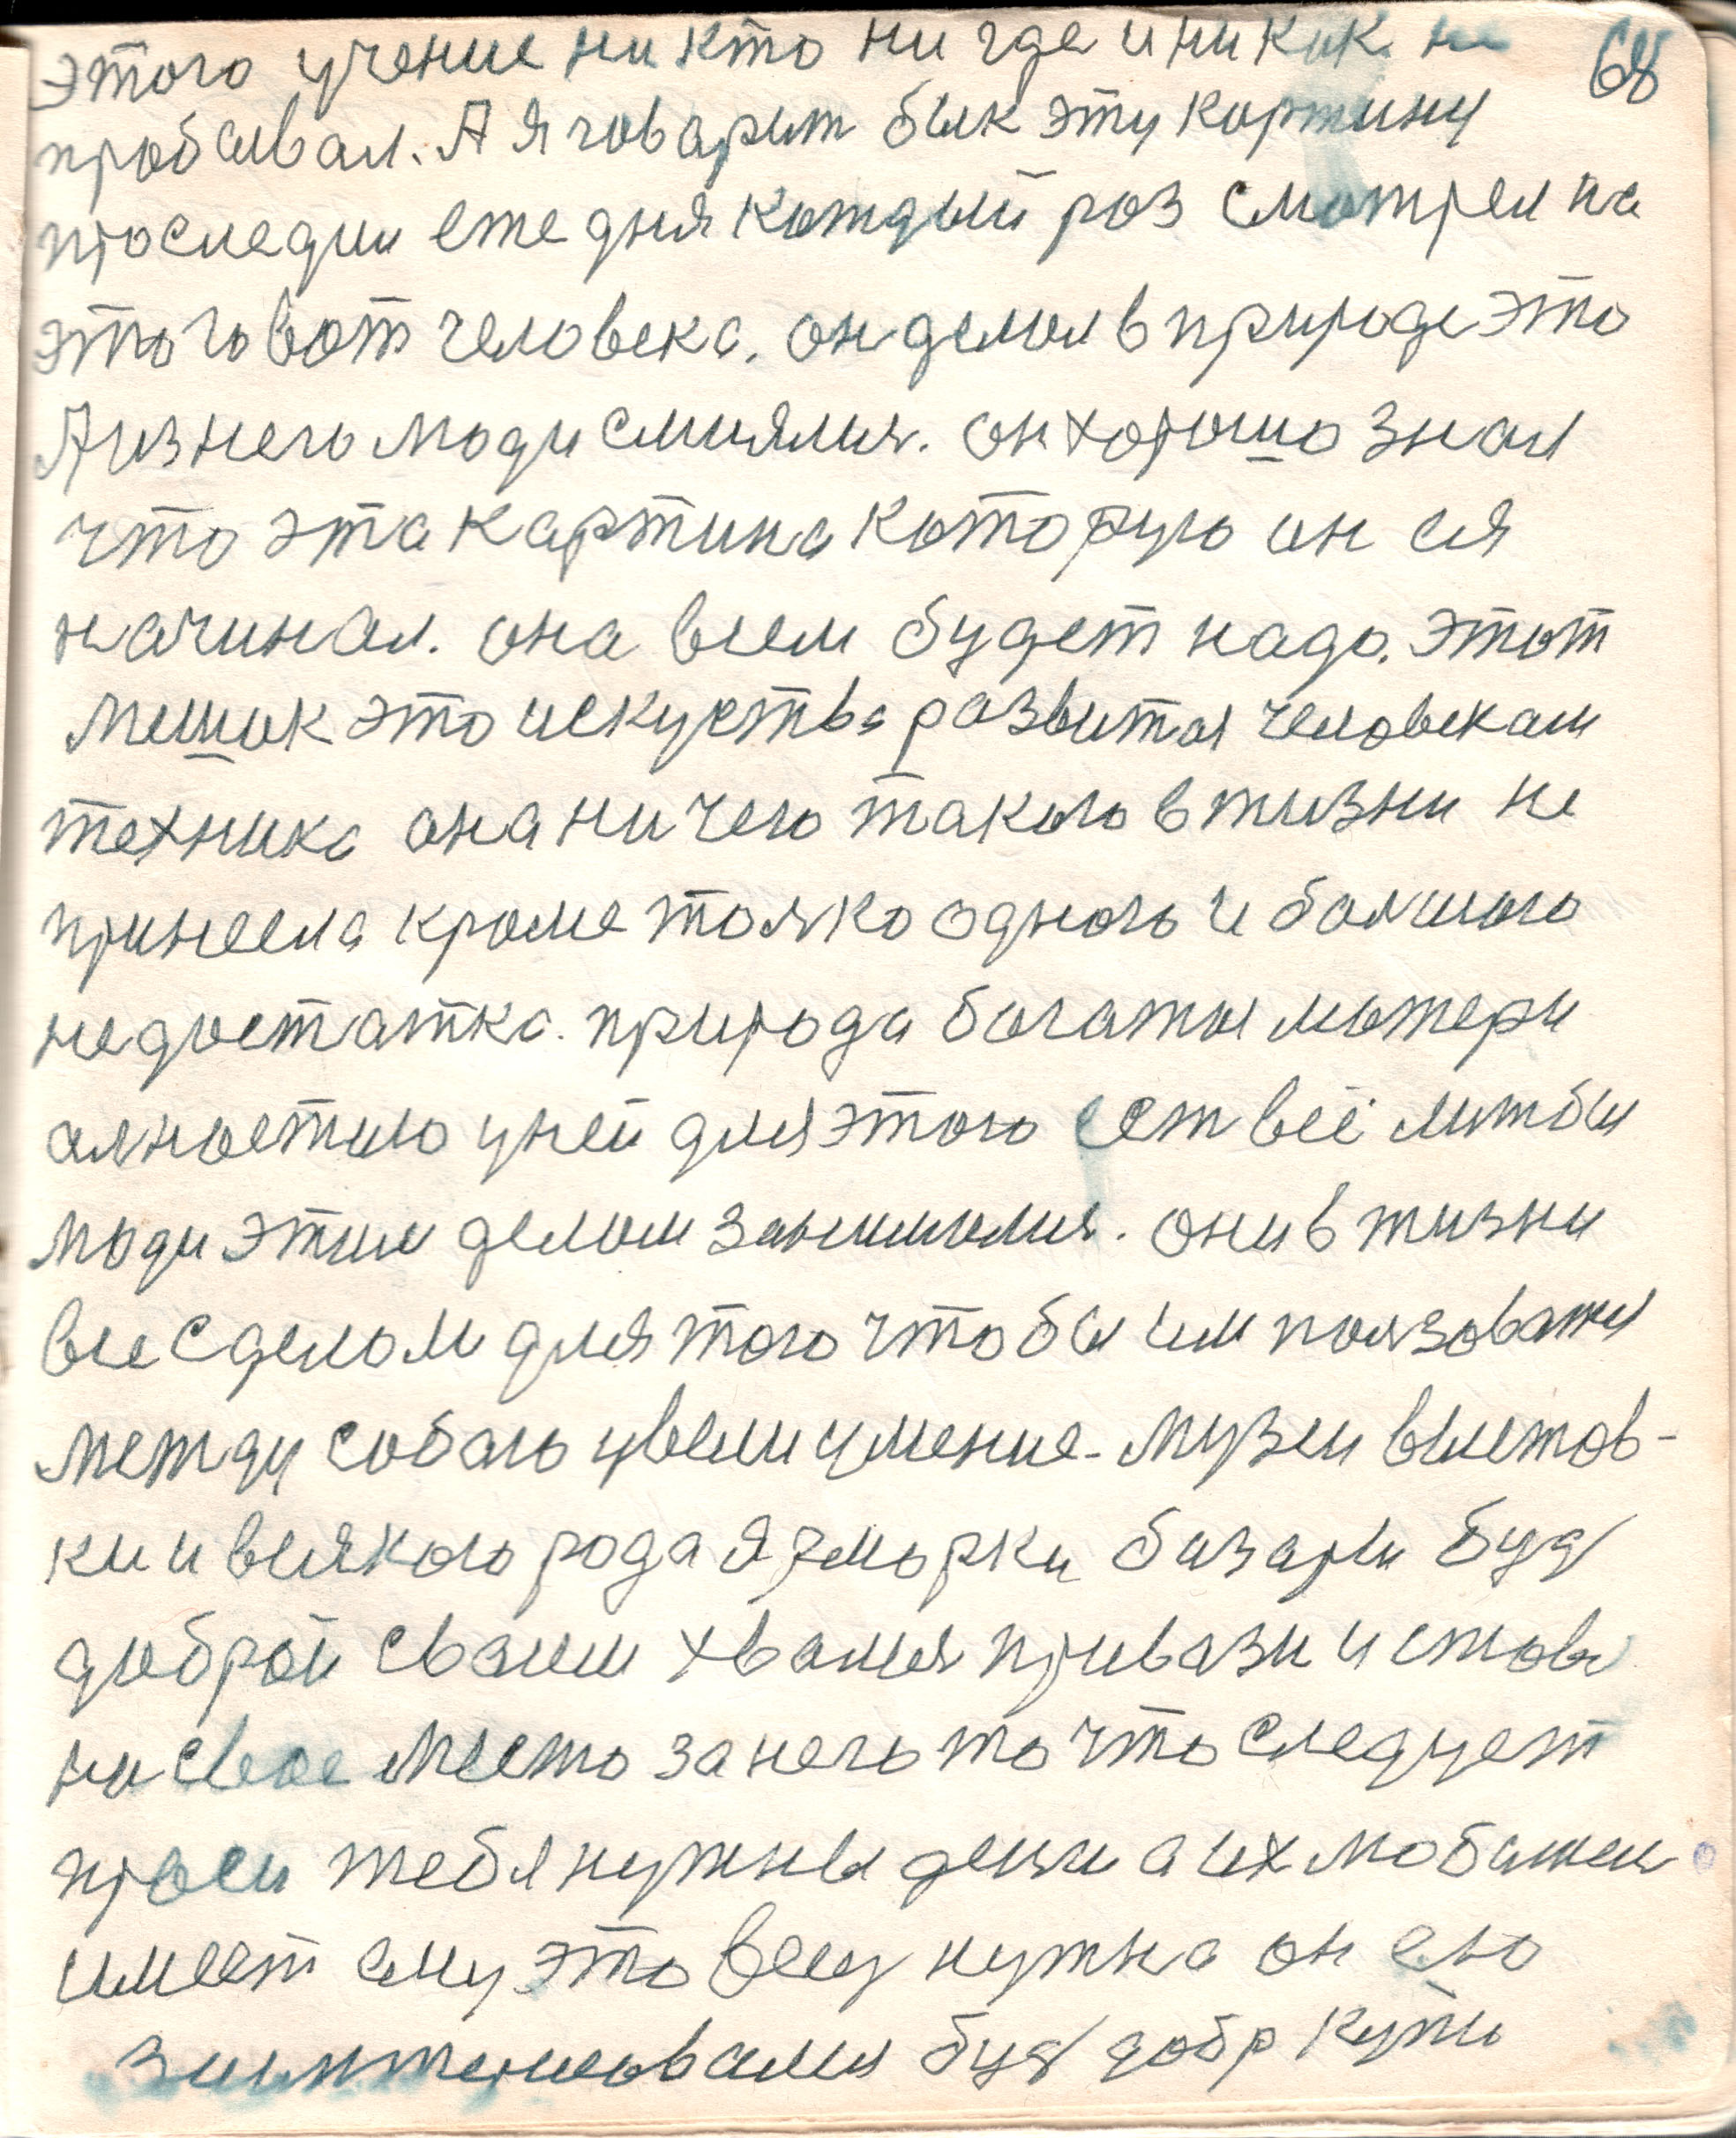 68
этого учение ни кто ни где и ни как не
пробывал. А я говарит бык эту картину
проследил еже дня каждый роз смотрел на
этого вот человека. он делал в природе это
А из него люди смиялися. он хорошо знал
что эта картина которую он ся
начинал. она всем будет надо. этот
мешок это искуство развитая человекам
техника она ни чего такого в жизни не
принесла кроме толко одного и болшого
недостатка. природа богатая матери
алностию у ней для этого ест всё литбы
люди этим делом занималися. они в жизни
все сделали для того чтобы им ползоватся
между собою увели умение. музеи выстов-
ки и всякого рода ярморки базары буд
доброй своим хвалися привази и стовь
на свое место за него то что следует
проси тебя нужны денги а их любитель
имеет ему это вещ нужна он ею
заинтересовался буд добр купи